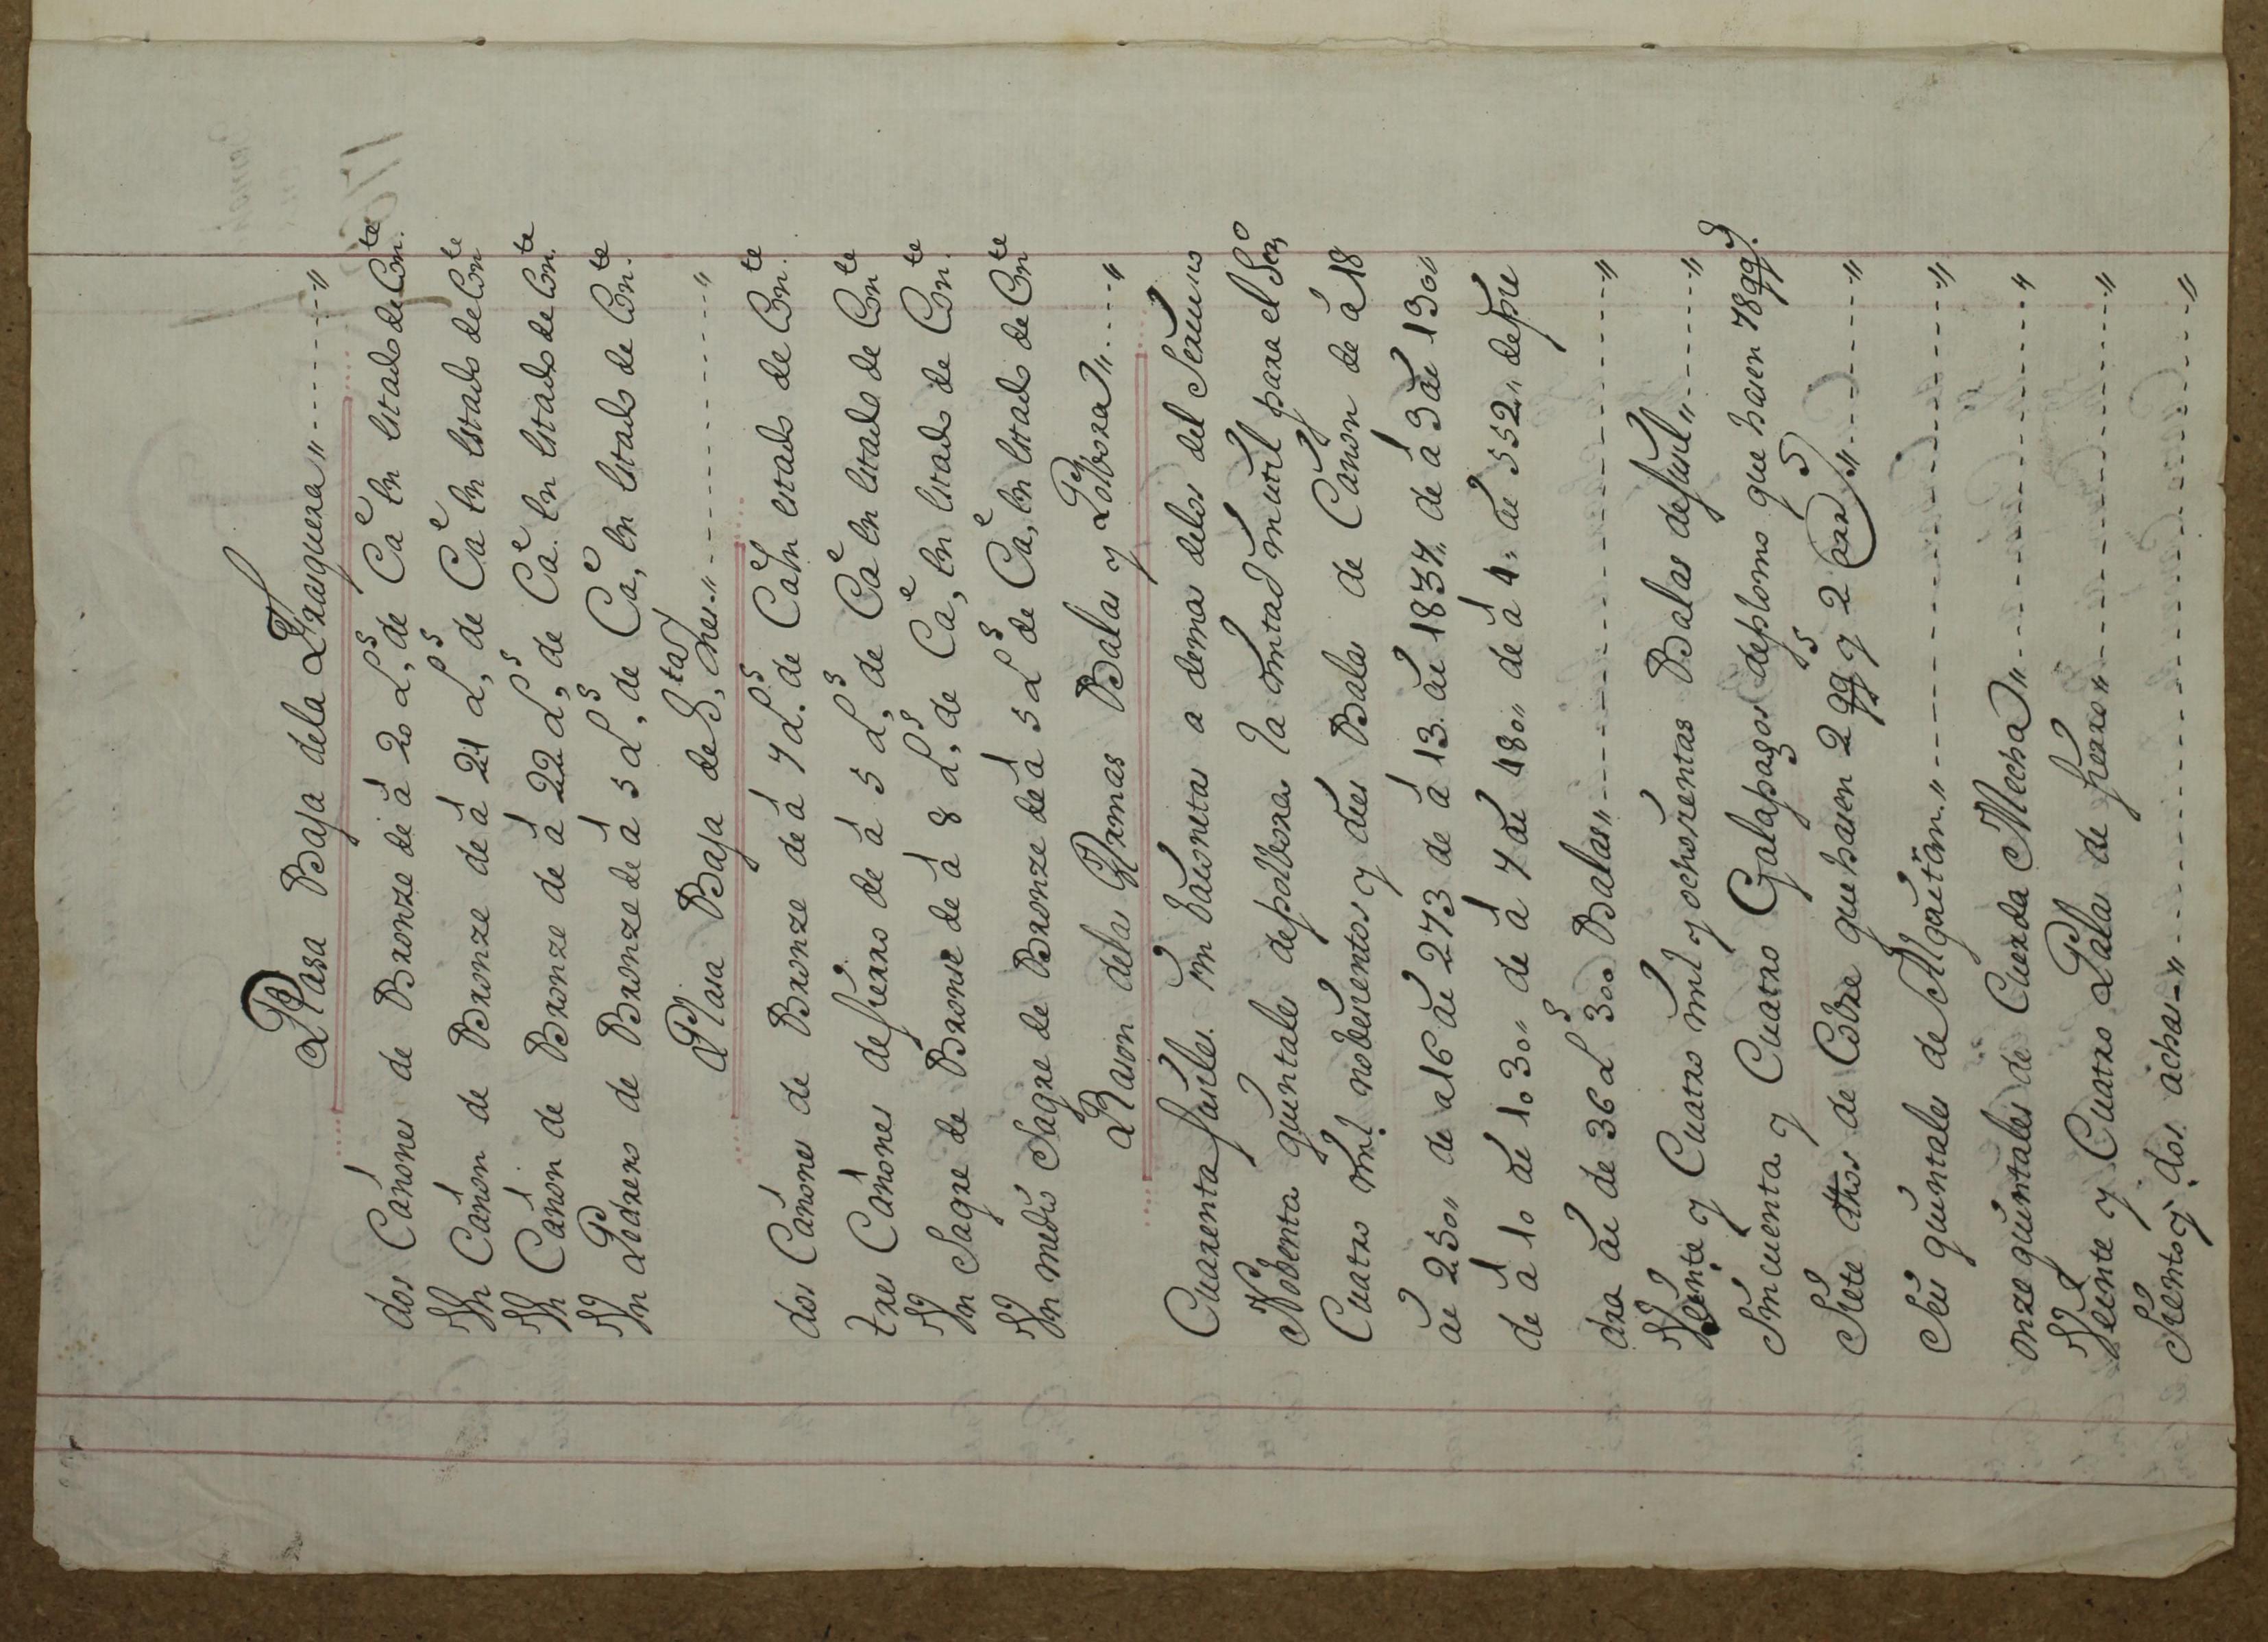 Plasa Baja dela Fraiquera„ - - - - - „
dos Cañones de Bronze de â 20 L,ˢ de Caᵉ En estado de Con.ᵗᵉ
Vn Cañon de Bronze de â 21 L,ˢ de Caᵉ En Estado de Conᵗᵉ
Vn Cañon de Bronze de â 22 L,ˢ de Ca.ᵉ En Estado de Con.ᵗᵉ
Vn Pedrero de Bronze de â 5 L,ˢ de Ca,ᵉ En Estado de Con.ᵗᵉ
Plasa Baja de S,ᵗᵃ Ynes.„ - - - - - - „
dos Cañones de Bronze de â 7 L.ˢ de Caᵉ En estado de Con.ᵗᵉ
tres Cañones de fierro de â 5 L,ˢ de Caᵉ En Estado de Conᵗᵉ
Vn Sagre de Bronse de â 8 L,ˢ de Ca,ᵉ En Estado de Con.ᵗᵉ
Vn medio Sagre de Bronze de â 5 Lˢ de Ca,ᵉ En Estado de Conᵗᵉ
Rason delas Armas Balas y Polbora„ - - - - „
Cuarenta fusiles sin baionetas a demas delos del Seruicio
Nobenta quintales de polbora la mitad inutil para el Ser,º
Cuatro mil nobesientos y dies Balas de Cañon de â 18
ai 250„ de a 16 ai 273 de â 13. ai 1837„ de â 3 ai 130„
de â 10 ai 1030„ de â 7 ai 480„ de â 4„ ai 552„ de pie
dra ai de 36 Lˢ 300 Balas„ - - - - - - „
Veinte y Cuatro mil y ochosientas Balas de fusil„ - - - - „
Sincuenta y Cuatro Galapagos de plomo que hasen 78 qq.ˢ
Siete dhos de Cobre que hasen 2 qqˢ y 2 arrˢ„ - - - - „
Seis quintales de Alquitran.„ - - - - - - „
onze quintales de Cuerda Mecha„ - - - - - „
Veinte y Cuatro Palas de fierro„ - - - - - „
Siento y dos achas„ - - - - - - „